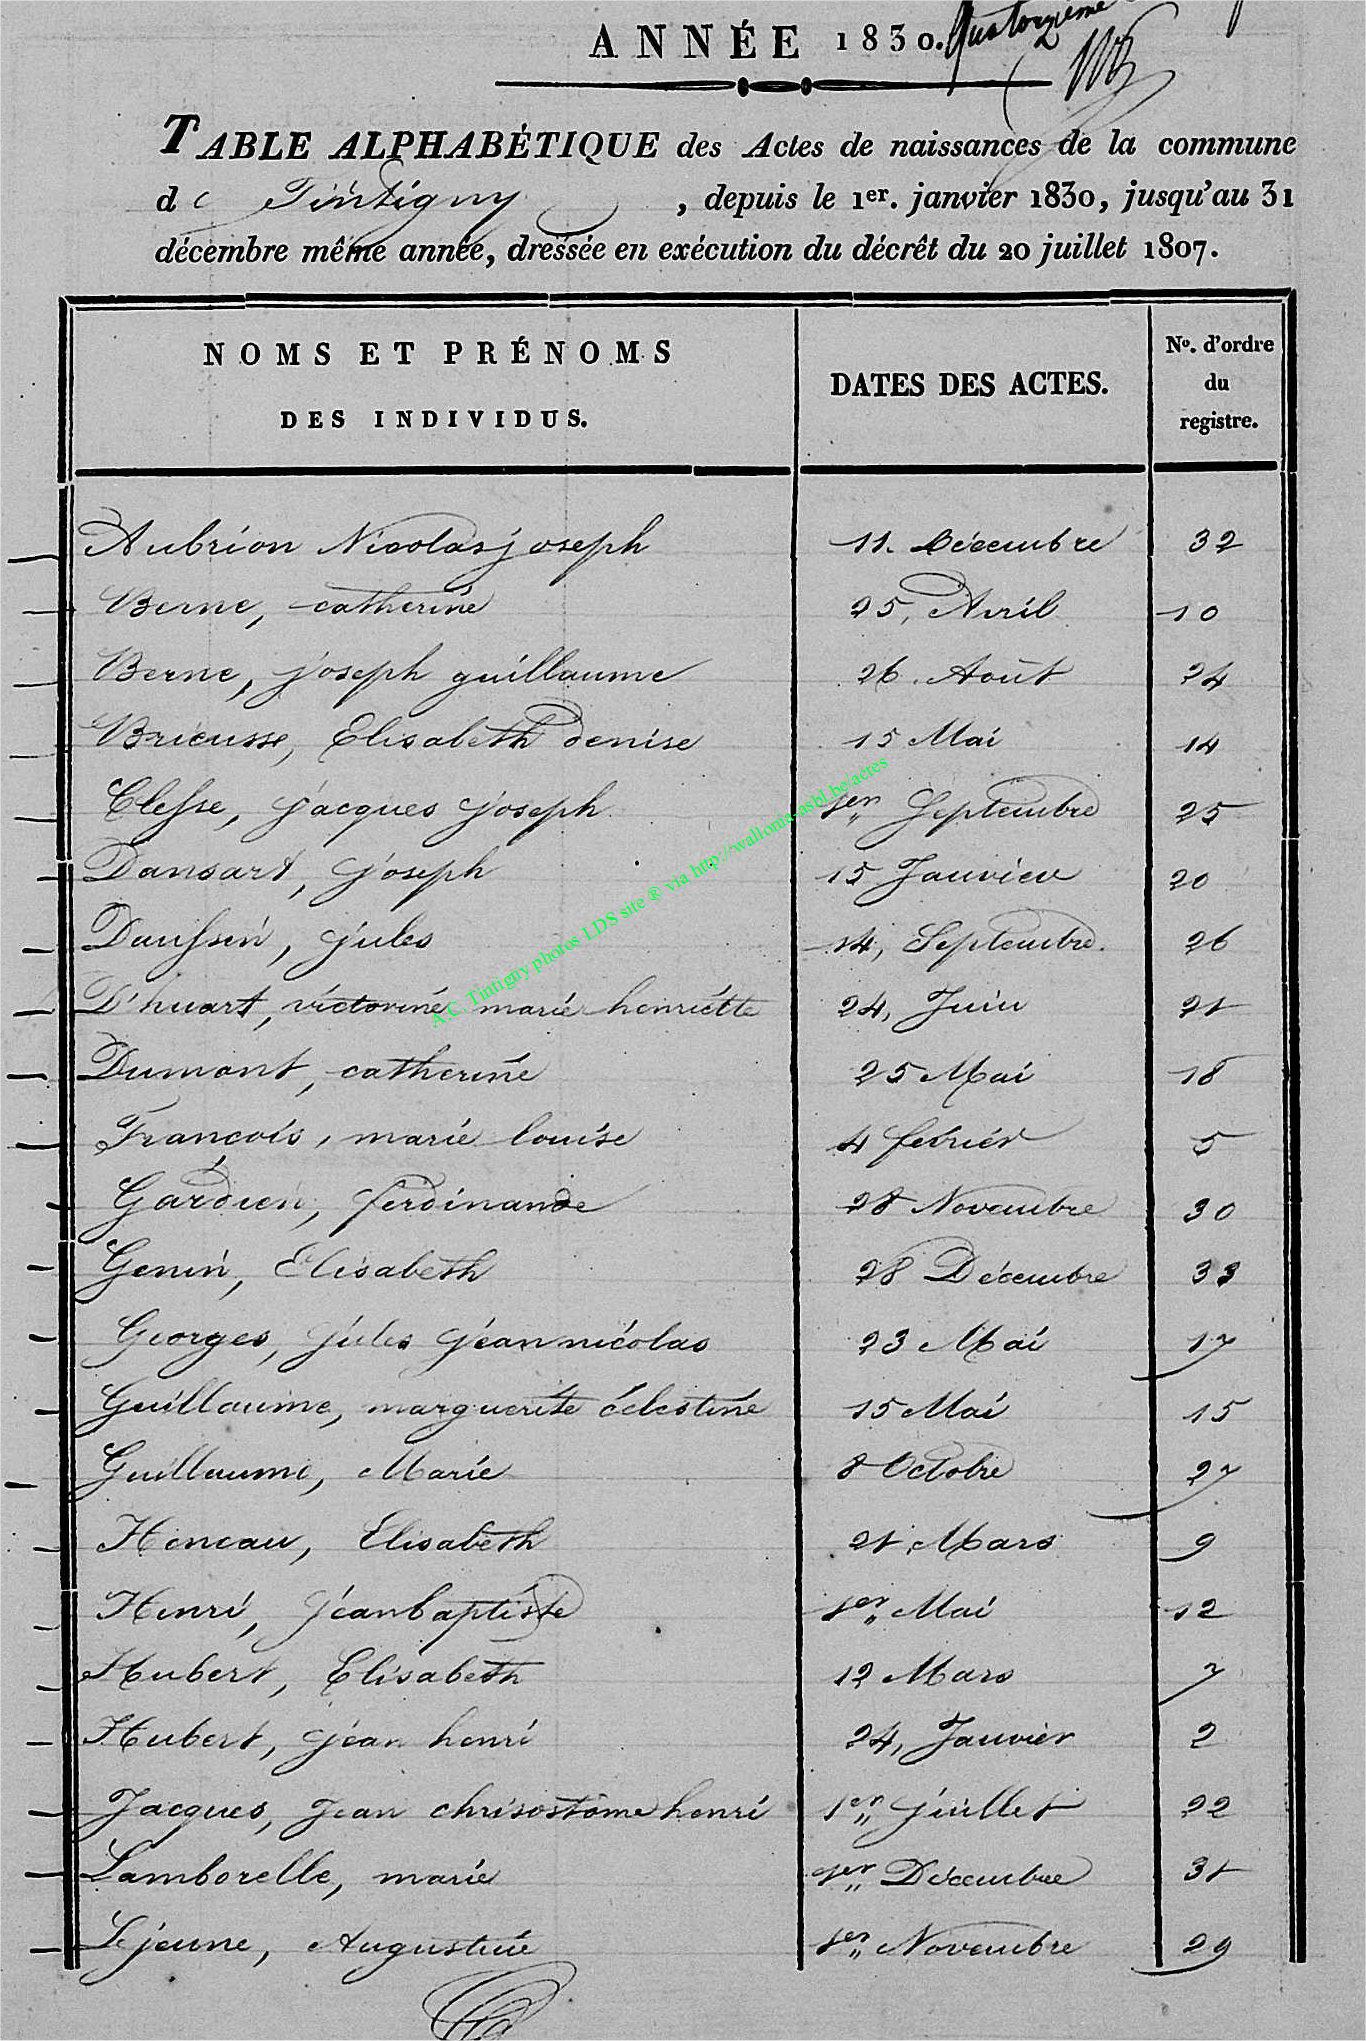 ANNÉE 1830. Quatorzième
TABLE ALPHABÉTIQUE des Actes de naissances de la commune
de Tintigny, depuis le 1er. janvier 1830, jusqu'au 31
décembre même année, dressée en exécution du décrêt du 20 juillet 1807.
NOMS ET PRÉNOMS
DES INDIVIDUS.
DATES DES ACTES.
No. d'ordre
du
registre.
Aubrion Nicolas joseph 11. Décembre 32
Berne, catherine 25, Avril 10
Berne, joseph guillaume 26. Août 24
Brieusse, Elisabeth denise 15 Mai 14
Clesse, jacques joseph 1er Septembre 25
Dansart, joseph 15 Janvier 20
Daussin, jules 14, Septembre. 26
D'huart, victorine marie henriette 24, Juin 21
Dumont, catherine 25 Mai 18
François, marie louise 4 février 5
Gardien, ferdinande 28 Novembre 30
Genin, Elisabeth 28 Décembre 33
Georges, jules jean nicolas 23 Mai 17
Guillaume, marguerite célestine 15 Mai 15
Guillaume, Marie 8 Octobre 27
Heneau, Elisabeth 21 Mars 9
Henri, jean baptiste 1er Mai 12
Hubert, Elisabeth 12 Mars 7
Hubert, jean henri 24, Janvier 2
Jacques, Jean chrisostome henri 1er juillet 22
Lamborelle, marie 1er Décembre 31
Lejeune, Augustine 1er Novembre 29
A.C. Tintigny photos LDS site ® via http://wallonia-asbl.be/actes